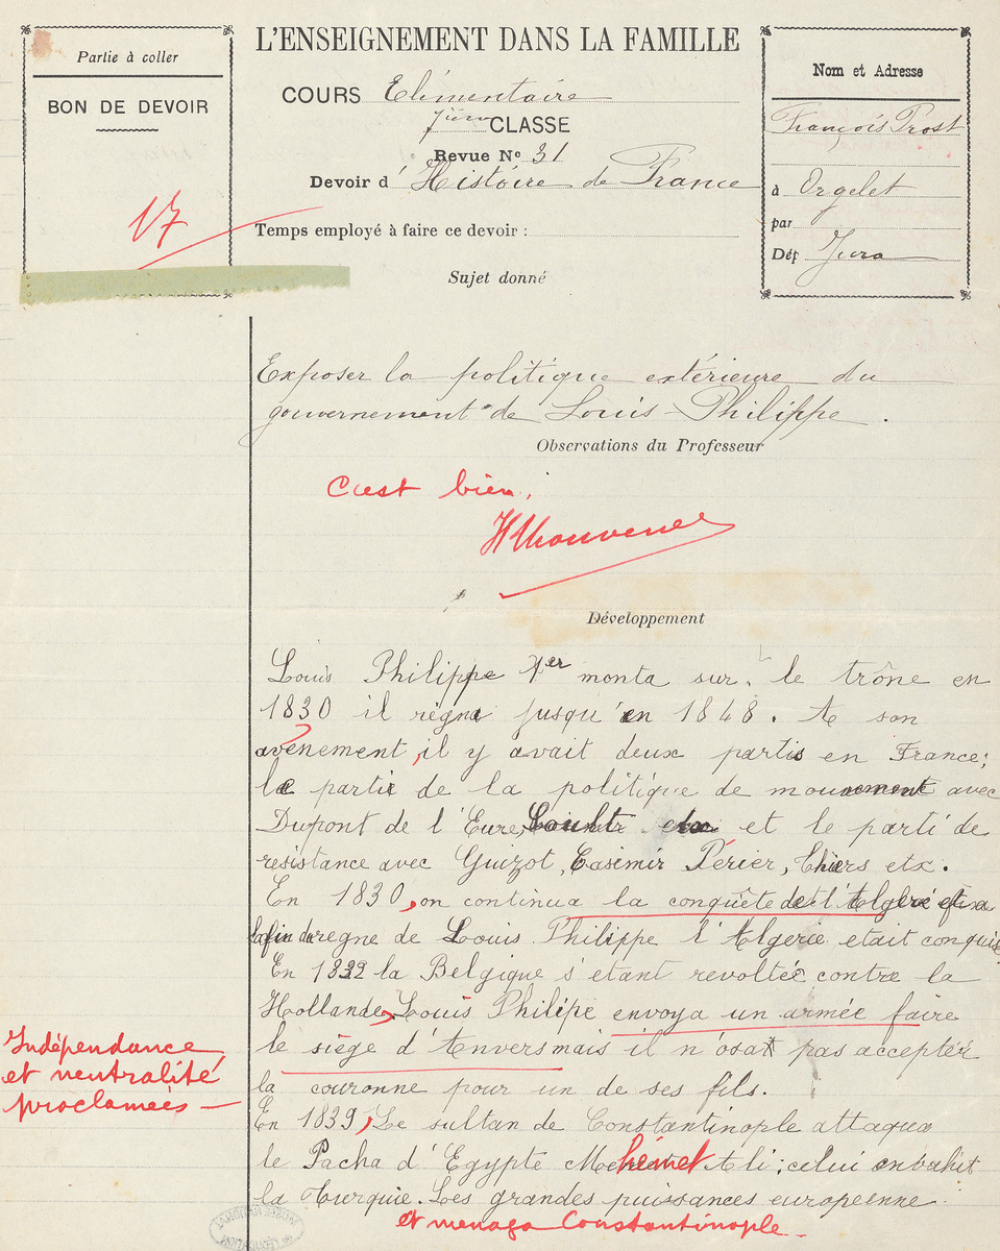 Partie à coller
BON DE DEVOIR
17
L'ENSEIGNEMENT DANS LA FAMILLE
COURS Elémentaire
CLASSE
Revue Nº 31
Devoir d' Histoire de France
Temps employé à faire ce devoir :
Sujet donné
Nom et Adresse
François Prost
à Orgelet
par
Dép Jura
Exposer la politique extérieure du
gouvernement de Louis-Philippe.
Observations du Professeur
C'est bien.
Développement
Louis Philippe 1er monta sur le trône en
1830 il règna jusqu'en 1848. A son
avènement, il y avait deux partis en France;
le partie de la politique de mouvement avec
Dupont de l'Eure, et le parti de
resistance avec Guizot, Casimir Périer, Thiers etx.
En 1830, on continua la conquête de l'Algérie
la fin du regne de Louis Philippe l'Algerie etait conquis
En 1832 la Belgique s'etant revoltée contre la
Hollande, Louis Philipe envoya un armée faire
le siège d'Anvers mais il n'osat pas accepter
la couronne pour un de ses fils.
Indépendance
et neutralité
proclamées —
En 1839, Le sultan de Constantinople attaqua
le Pacha d'Egypte Méhémet Ali; celui envahit
la Turquie. Les grandes puissances europeenne
et menaça Constantinople —